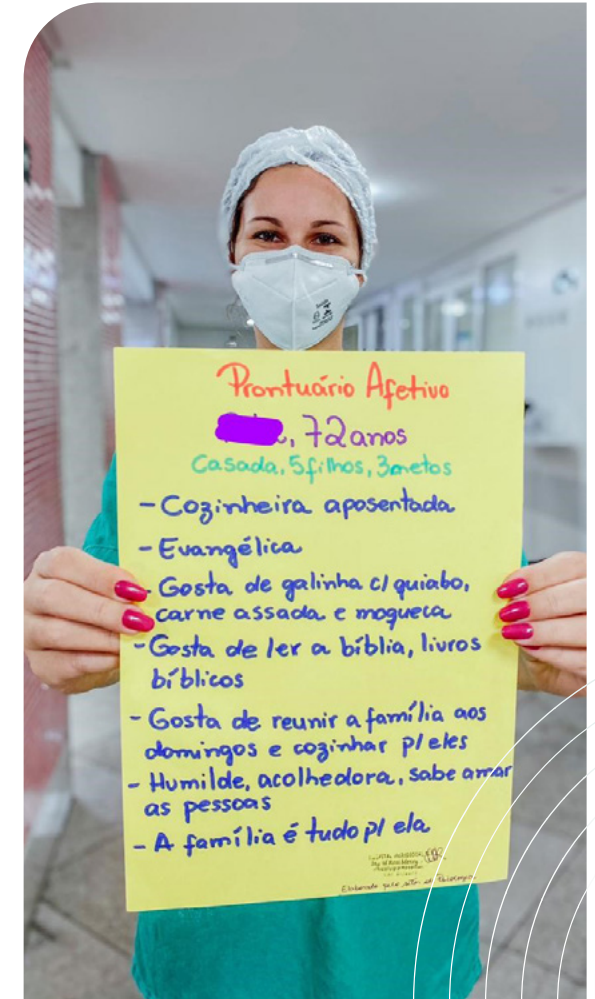 Prontuário Afetivo
, 72 anos
Casada, 5 filhos, 3 netos
- Cozinheira aposentada
- Evangélica
- Gosta de galinha c/ quiabo,
carne assada e moqueca
- Gosta de ler a bíblia, livros
bíblicos
- Gosta de reunir a família aos
domingos e cozinhar p/ eles
- Humilde, acolhedora, sabe amar
as pessoas
- A família é tudo p/ ela
Elaborado pelo setor de Psicologia